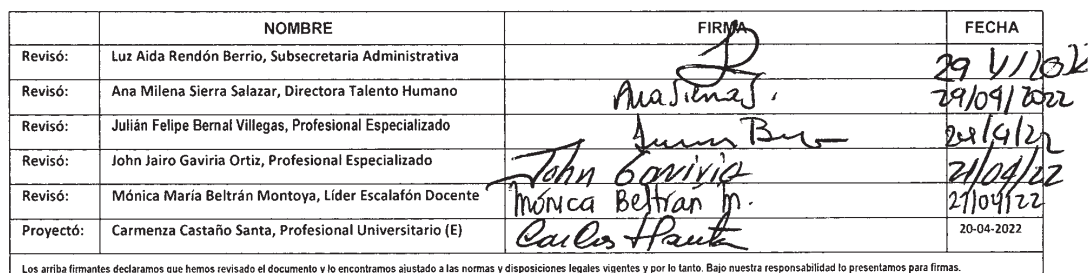 NOMBRE FIRMA FECHA
Revisó: Luz Aida Rendón Berrio, Subsecretaria Administrativa 29
Revisó: Ana Milena Sierra Salazar, Directora Talento Humano 29/04/2022
Revisó: Julián Felipe Bernal Villegas, Profesional Especializado
Revisó: John Jairo Gaviria Ortiz, Profesional Especializado John Gaviria 21/04/22
Revisó: Mónica María Beltrán Montoya, Líder Escalafón Docente Mónica Beltrán M. 21/04/22
Proyectó: Carmenza Castaño Santa, Profesional Universitario (E) 20-04-2022
Los arriba firmantes declaramos que hemos revisado el documento y lo encontramos ajustado a las normas y disposiciones legales vigentes y por lo tanto. Bajo nuestra responsabilidad lo presentamos para firmas.